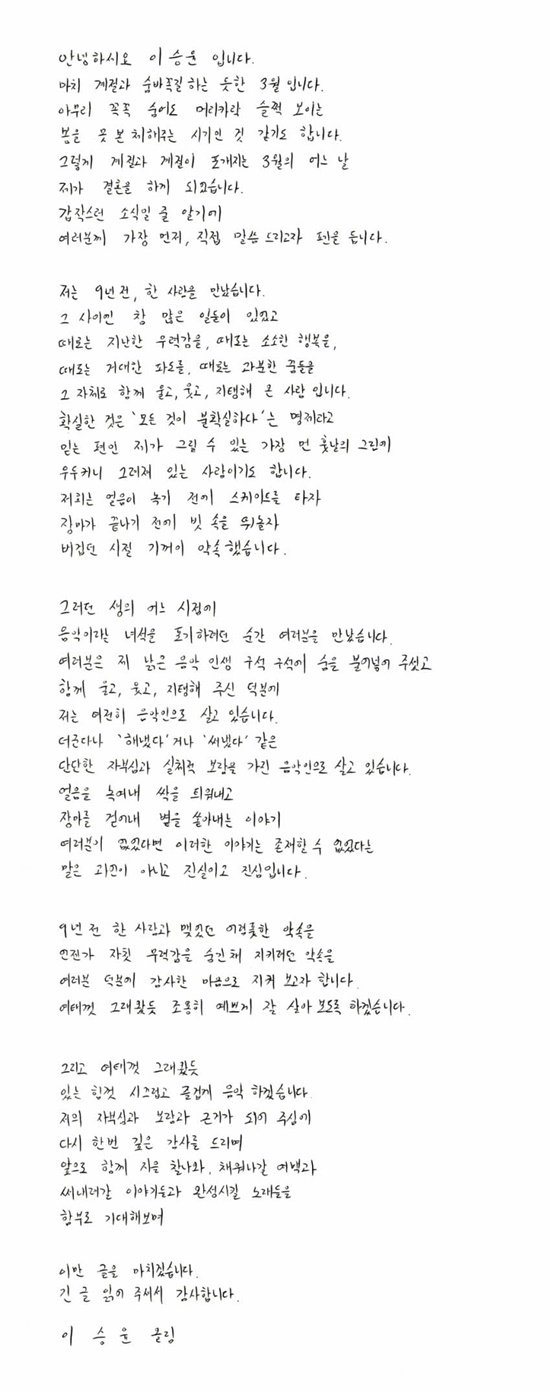 안녕하시오 이승윤 입니다.
마치 계절과 숨바꼭질 하는 듯한 3월 입니다.
아무리 꼭꼭 숨어도 머리카락 슬쩍 보이는
봄을 못 본 체 해주는 시기인 것 같기도 합니다.
그렇게 계절과 계절이 포개지는 3월의 어느 날
제가 결혼을 하게 되었습니다.
갑작스런 소식일 줄 알기에
여러분께 가장 먼저, 직접 말씀 드리고자 펜을 듭니다.
저는 9년 전, 한 사람을 만났습니다.
그 사이엔 참 많은 일들이 있었고
때로는 지난한 무력감을, 때로는 소소한 행복을,
때로는 거대한 파도를, 때로는 과분한 꿈들을
그 자체로 함께 울고, 웃고, 지탱해 온 사람 입니다.
확실한 것은 '모든 것이 불확실하다' 는 명제라고
믿는 편인 제가 그릴 수 있는 가장 먼 훗날의 그림에
우두커니 그려져 있는 사람이기도 합니다.
저희는 얼음이 녹기 전에 스케이트를 타자
장마가 끝나기 전에 빗 속을 뛰놀자
버겁던 시절 기꺼이 약속 했습니다.
그러던 생의 어느 시점에
음악이라는 녀석을 포기하려던 순간 여러분을 만났습니다.
여러분은 제 낡은 음악 인생 구석 구석에 숨을 불어넣어 주셨고
함께 울고, 웃고, 지탱해 주신 덕분에
저는 여전히 음악인으로 살고 있습니다.
더군다나 '해냈다' 거나 '써냈다' 같은
단단한 자부심과 실체적 보람을 가진 음악인으로 살고 있습니다.
얼음을 녹여내 싹을 틔워내고
장마를 걷어내 볕을 쏟아내는 이야기
여러분이 없었다면 이러한 이야기는 존재할 수 없었다는
말은 과언이 아니고 진실이고 진심입니다.
9년 전 한 사람과 맺었던 어렴풋한 약속을
언젠가 자칫 무력감을 숨긴 채 지키려던 약속을
여러분 덕분에 감사한 마음으로 지켜 보고자 합니다.
여태껏 그래왔듯 조용히 예쁘게 잘 살아 보도록 하겠습니다.
그리고 여태껏 그래왔듯
있는 힘껏 시끄럽고 즐겁게 음악 하겠습니다.
저의 자부심과 보람과 근거가 되어 주심에
다시 한번 깊은 감사를 드리며
앞으로 함께 지을 찰나와, 채워나갈 여백과
써내려갈 이야기들과 완성시킬 노래들을
함부로 기대해보며
이만 글을 마치겠습니다.
긴 글 읽어 주셔서 감사합니다.
이 승 윤 올림